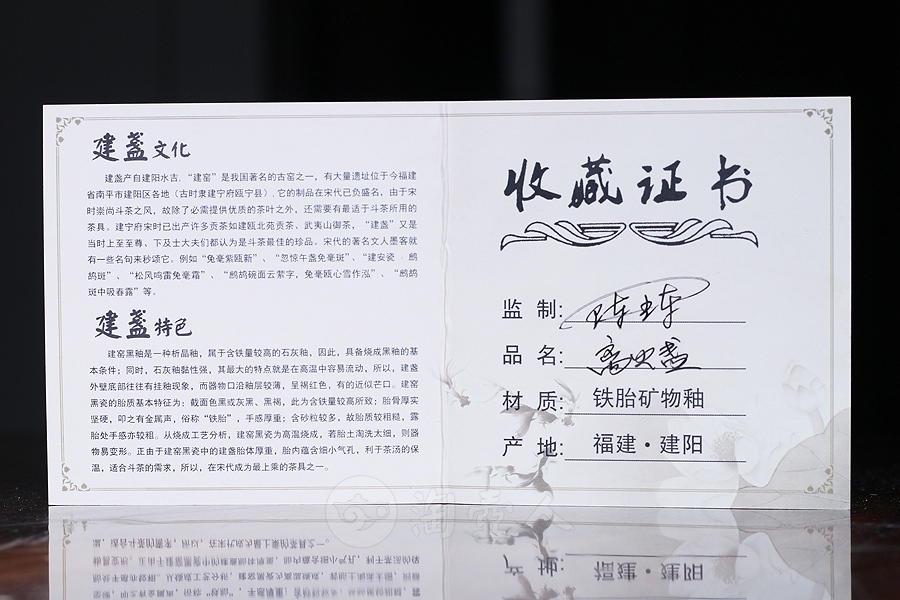 建盏文化
建盏产自建阳水吉，“建窑”是我国著名的古窑之一，有大量遗址位于今福建
省南平市建阳区各地（古时隶建宁府瓯宁县）,它的制品在宋代已负盛名，由于宋
时崇尚斗茶之风，故除了必需提供优质的茶叶之外，还需要有最适于斗茶所用的
茶具。建宁府宋时已出产许多贡茶如建瓯北苑贡茶、武夷山御茶，“建盏”又是
当时上至至尊、下及士大夫们都认为是斗茶最佳的珍品。宋代的著名文人墨客就
有一些名句来秒颂它。例如“兔毫紫瓯新”、“忽惊午盏兔毫斑”、“建安瓷 鹧
鸪斑”、“松风鸣雷兔毫霜”、“鹧鸪碗面云萦字，兔毫瓯心雪作泓”、“鹧鸪
斑中吸春露”等。
建盏特色
建窑黑釉是一种析晶釉，属于含铁量较高的石灰釉，因此，具备烧成黑釉的基
本条件；同时，石灰釉黏性强，其最大的特点就是在高温中容易流动，所以，建盏
外壁底部往往有挂釉现象，而器物口沿釉层较薄，呈褐红色，有的近似芒口。建窑
黑瓷的胎质基本特征为；截面色黑或灰黑、黑褐，此为含铁量较高所致；胎骨厚实
坚硬，叩之有金属声，俗称“铁胎”，手感厚重；含砂粒较多，故胎质较粗糙，露
胎处手感亦较粗。从烧成工艺分析，建窑黑瓷为高温烧成，若胎土淘洗太细，则器
物易变形。正由于建窑黑瓷中的建盏胎体厚重，胎内蕴含细小气孔，利于茶汤的保
温，适合斗茶的需求，所以，在宋代成为最上乘的茶具之一。
收藏证书
监 制:
品 名:
材 质: 铁胎矿物釉
产 地: 福建·建阳